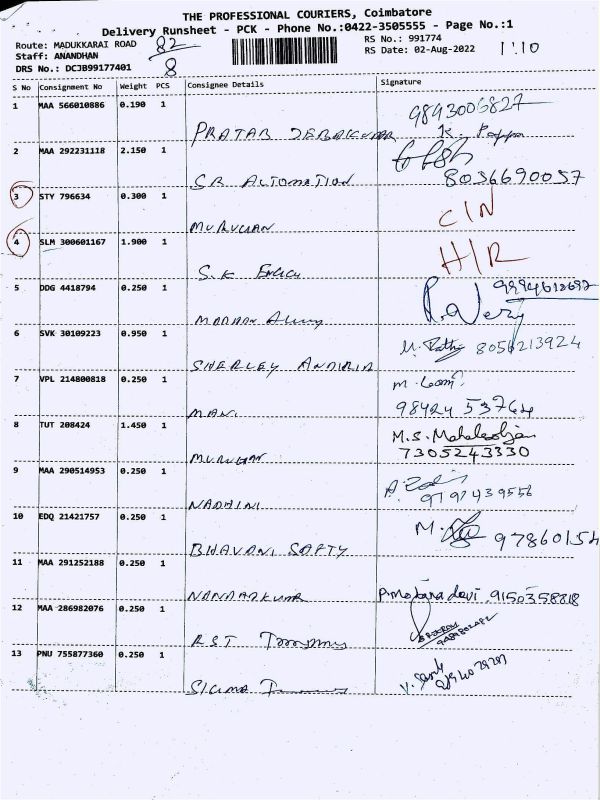 THE PROFESSIONAL COURIERS, Coimbatore
Delivery Runsheet - PCK - Phone No.:0422-3505555 - Page No.:1
Route: MADUKKARAI ROAD 82 RS No.: 991774
Staff: ANANDHAN RS Date: 02-Aug-2022 1:10
DRS No.: DCJB99177401 8
S No Consignment No Weight PCS Consignee Details Signature
1 MAA 566010886 0.190 1
9893006827
PRATAB
2 MAA 292231118 2.150 1
SR AUTOMATION 8036690057
3 STY 796634 0.300 1
MURUGAN C/N
4 SLM 300601167 1.900 1
S.K H/R
5 DDG 4418794 0.250 1
6 SVK 30109223 0.950 1
SHERLEY 8056213924
7 VPL 214800818 0.250 1
MANI 98424 53764
8 TUT 208424 1.450 1
MURUGAN 7305243330
9 MAA 290514953 0.250 1
NADHINI 9797439556
10 EDQ 21421757 0.250 1
BHAVANI SAFTY 97860154
11 MAA 291252188 0.250 1
NANDAKUMAR P.Mohana devi 9150358818
12 MAA 286982076 0.250 1
RST
13 PNU 755877360 0.250 1
SIGMA